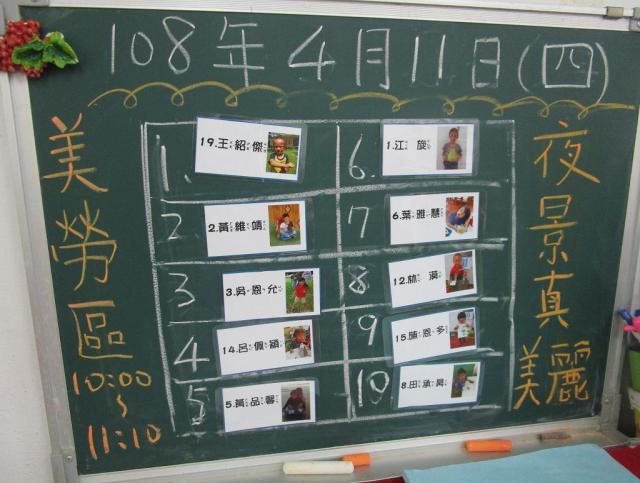 108年4月11日(四)
美勞區
10:00
~
11:10
1. 19.王紹傑
2 2.黃維靖
3 3.吳恩允
4 14.呂佩穎
5 5.黃品馨
6. 1.江旋
7 6.葉雅慧
8 12.林漠
9 15.陳恩多
10 8.田承昇
夜景真美麗